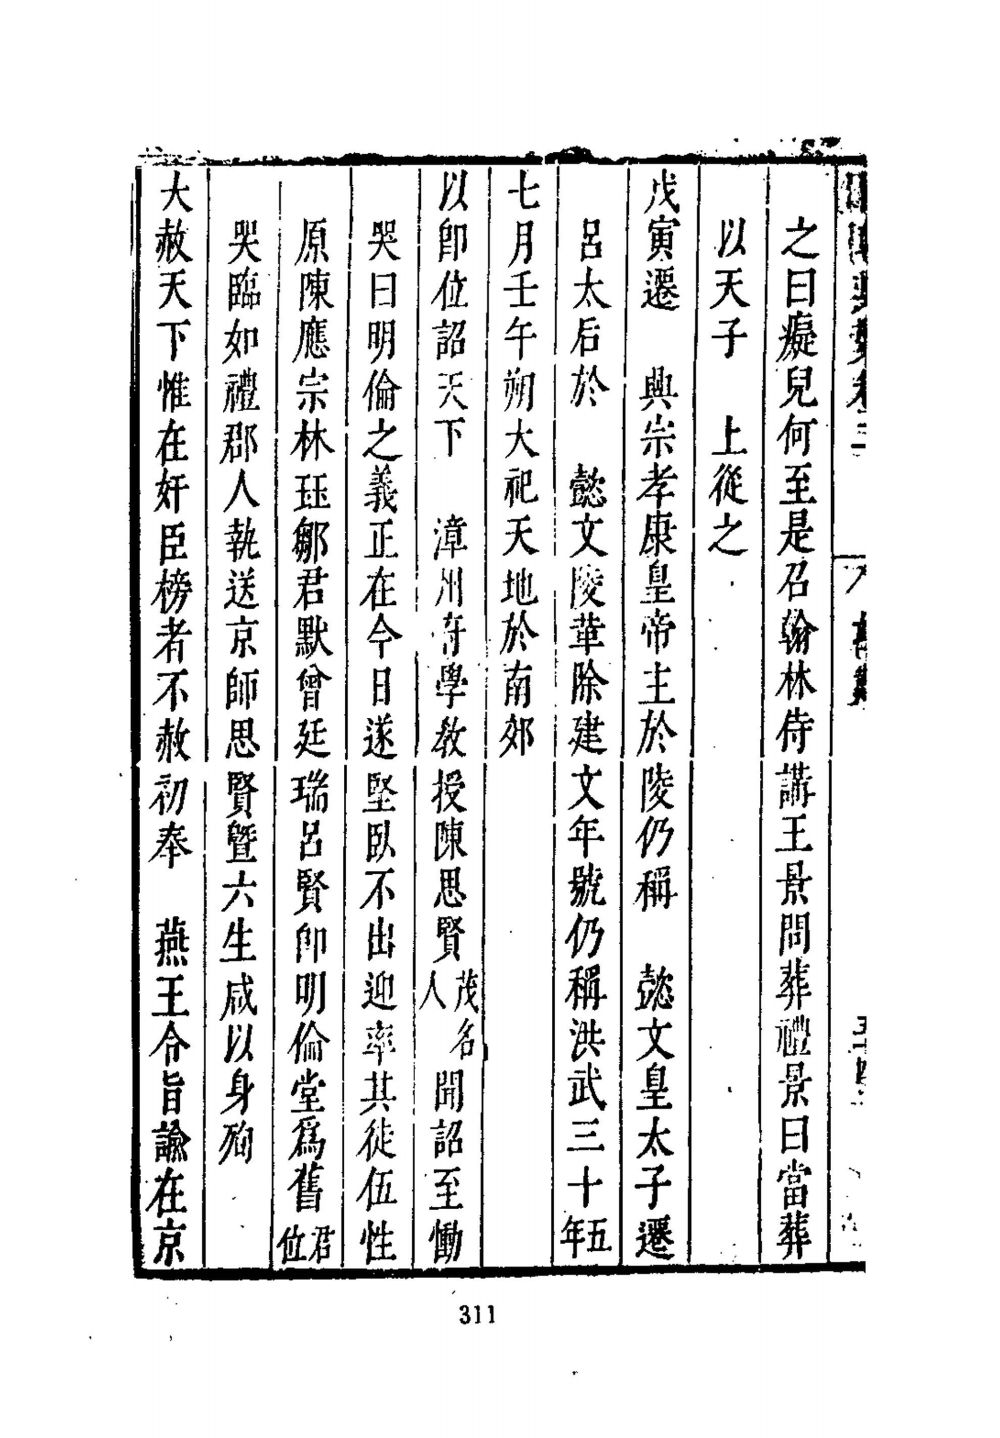 之曰癡兒何至是召翰林侍講王景問葬禮景曰當葬
以天子　上從之
戊寅遷　興宗孝康皇帝主於陵仍稱　懿文皇太子遷
呂太后於　懿文陵革除建文年號仍稱洪武三十五年
七月壬午朔大祀天地於南郊
以卽位詔天下　漳州府學教授陳思賢茂名人聞詔至慟
哭曰明倫之義正在今日遂堅臥不出迎率其徒伍性
原陳應宗林珏鄒君默曾廷瑞呂賢卽明倫堂爲舊君位
哭臨如禮郡人執送京師思賢暨六生咸以身殉
大赦天下惟在奸臣榜者不赦初奉　燕王令旨諭在京
311